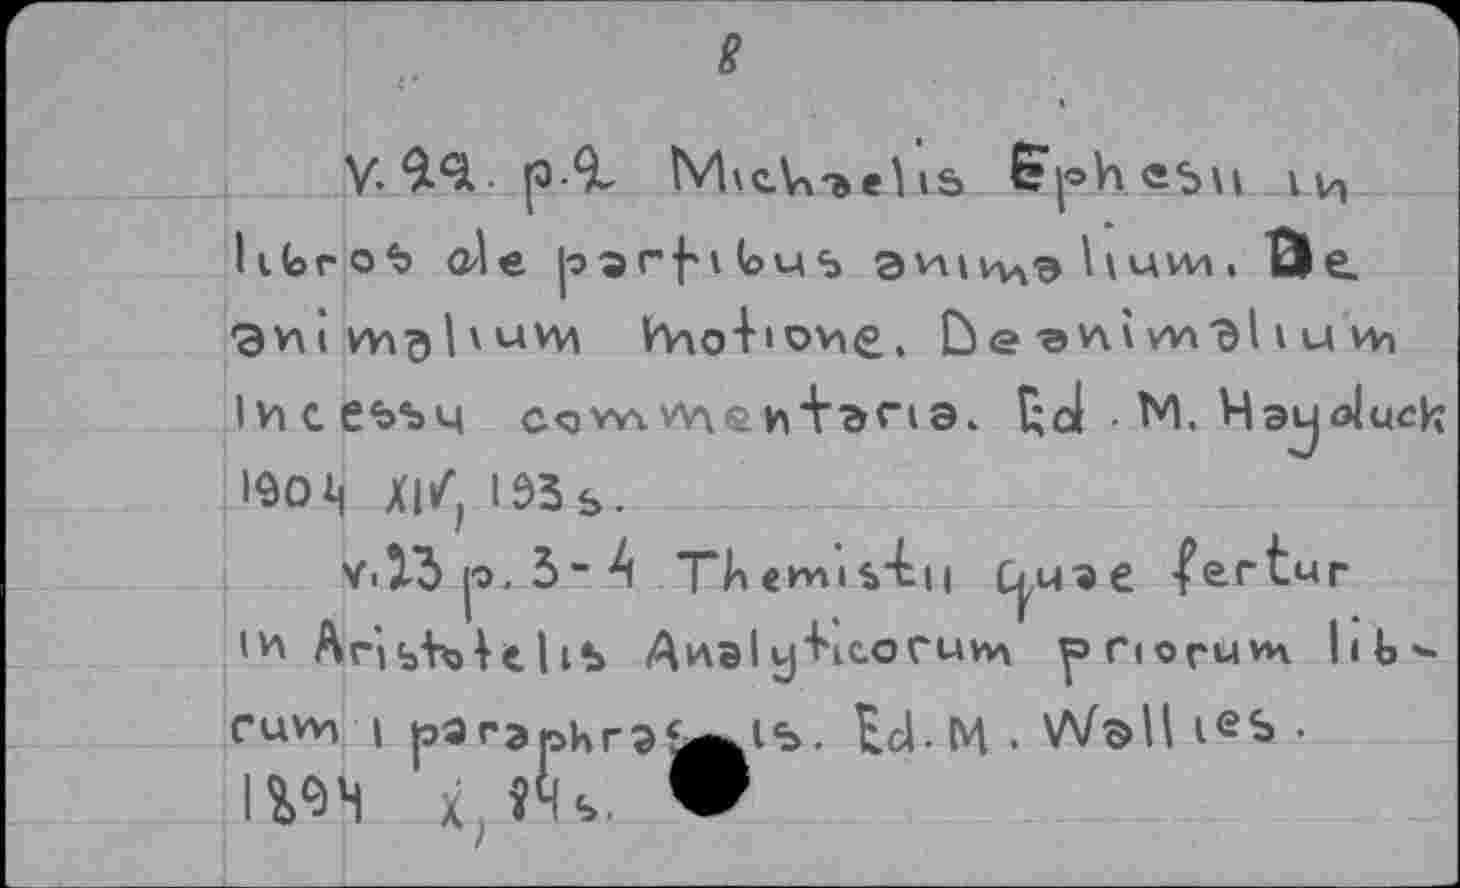 8
v. 22. p. 2. Michaelis Ephesii in
libros de partibus animalium. De
animalium motione. De animalium
incessu commentaria. Ed. M. Hayduck
1904 XIV, 193 s.
v. 23 p. 3-4 Themistii quae fertur
in Aristotelis Analyticorum priorum lib-
rum I paraphrasis. Ed. M. Wallies.
1894 X, 84 s.